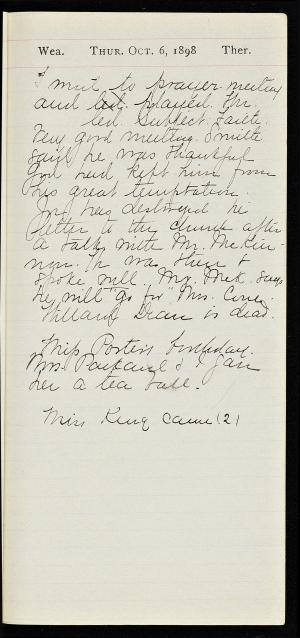 Wea. THUR. OCT. 6, 1898 Ther.
I went to prayer meeting
and played. Mr.
led. Subject, Faith.
Very good meeting. Smith
said he was thankful
God had kept him from
his great temptation.
has destroyed he
letter to the church after
a talk with Mr. McKin-
non. He was there &
spoke well. Mr. McK. says
he will "go for" Mrs.
Willard Dean is dead.
Miss Porter's birthday.
Mrs. & I gave
her a tea ball.
Miss King came (2)